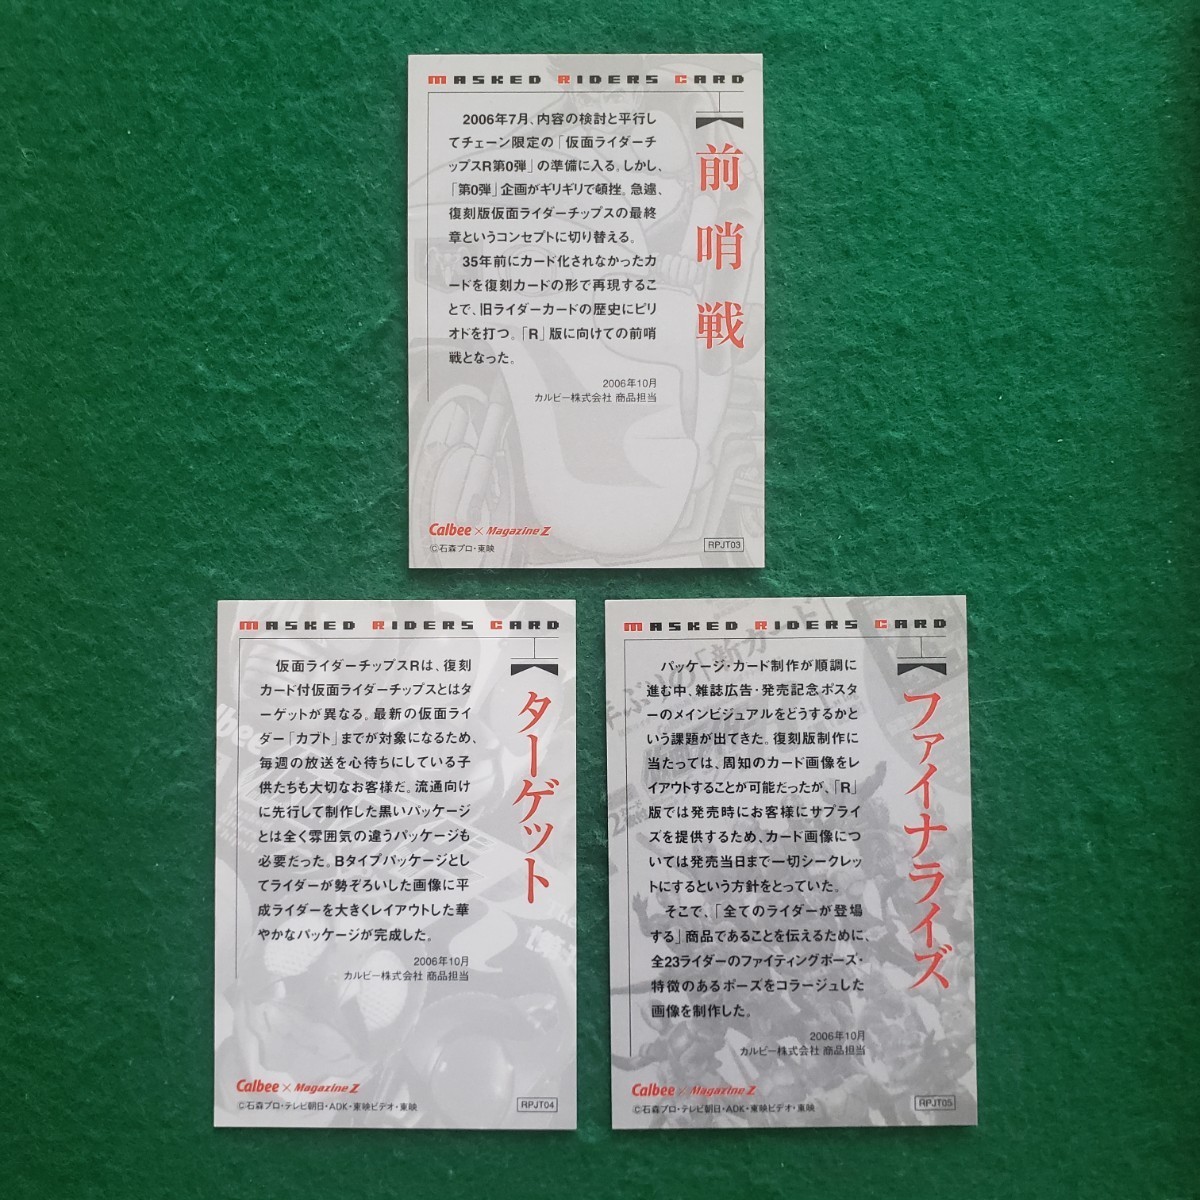 MASKED RIDERS CARD
前哨戦
2006年7月、内容の検討と平行し
てチェーン限定の「仮面ライダーチ
ップスR第0弾」の準備に入る。しかし、
「第0弾」企画がギリギリで頓挫。急遽、
復刻版仮面ライダーチップスの最終
章というコンセプトに切り替える。
35年前にカード化されなかったカ
ードを復刻カードの形で再現するこ
とで、旧ライダーカードの歴史にピリ
オドを打つ。「R」版に向けての前哨
戦となった。
2006年10月
カルビー株式会社 商品担当
Calbee × Magazine Z
©石森プロ・東映
RPJT03
MASKED RIDERS CARD
ターゲット
仮面ライダーチップスRは、復刻
カード付仮面ライダーチップスとはタ
ーゲットが異なる。最新の仮面ライ
ダー「カブト」までが対象になるため、
毎週の放送を心待ちにしている子
供たちも大切なお客様だ。流通向け
に先行して制作した黒いパッケージ
とは全く雰囲気の違うパッケージも
必要だった。Bタイプパッケージとし
てライダーが勢ぞろいした画像に平
成ライダーを大きくレイアウトした華
やかなパッケージが完成した。
2006年10月
カルビー株式会社 商品担当
Calbee × Magazine Z
©石森プロ・テレビ朝日・ADK・東映ビデオ・東映
RPJT04
MASKED RIDERS CARD
ファイナライズ
パッケージ・カード制作が順調に
進む中、雑誌広告・発売記念ポスタ
ーのメインビジュアルをどうするかと
いう課題が出てきた。復刻版制作に
当たっては、周知のカード画像をレ
イアウトすることが可能だったが、「R」
版では発売時にお客様にサプライ
ズを提供するため、カード画像につ
いては発売当日まで一切シークレッ
トにするという方針をとっていた。
そこで、「全てのライダーが登場
する」商品であることを伝えるために、
全23ライダーのファイティングポーズ・
特徴のあるポーズをコラージュした
画像を制作した。
2006年10月
カルビー株式会社 商品担当
Calbee × Magazine Z
©石森プロ・テレビ朝日・ADK・東映ビデオ・東映
RPJT05